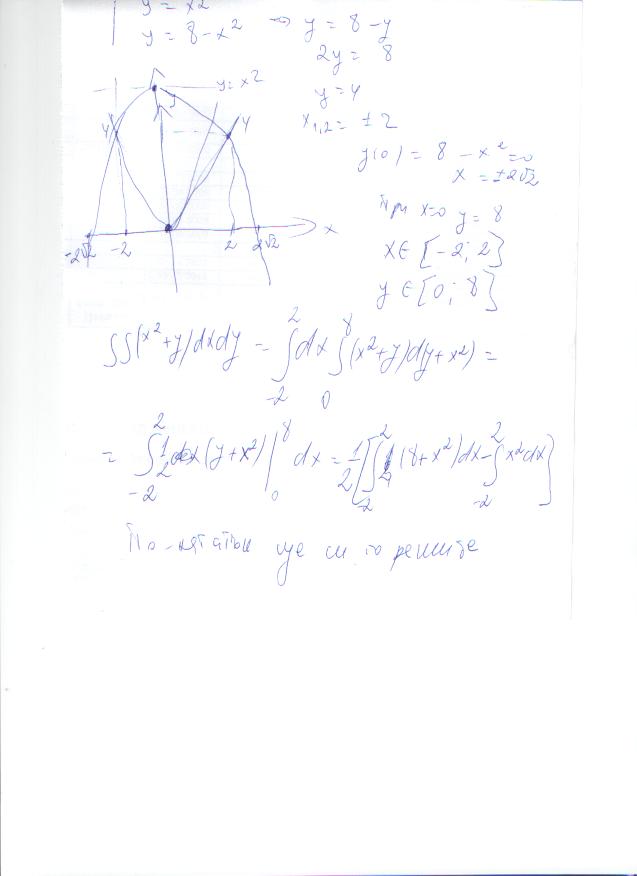 y = x2
y = 8 - x² => y = 8 - y
2y = 8
y = 4
x₁,₂ = ± 2
y(0) = 8 - x² = 0
x = ±2√2
При x=0 y = 8
x ∈ [-2; 2]
y ∈ [0; 8]
y = x²
y
4 4
-2√2 -2 2 2√2 x
∫∫(x²+y)dxdy = ∫₋₂² dx ∫₀⁸ (x²+y)dy+x²) =
= ∫₋₂² 1/2 (y+x²) |₀⁸ dx = 1/2 [∫₋₂² (8+x²)dx - ∫₋₂² x²dx]
По-нататък ще си го решите